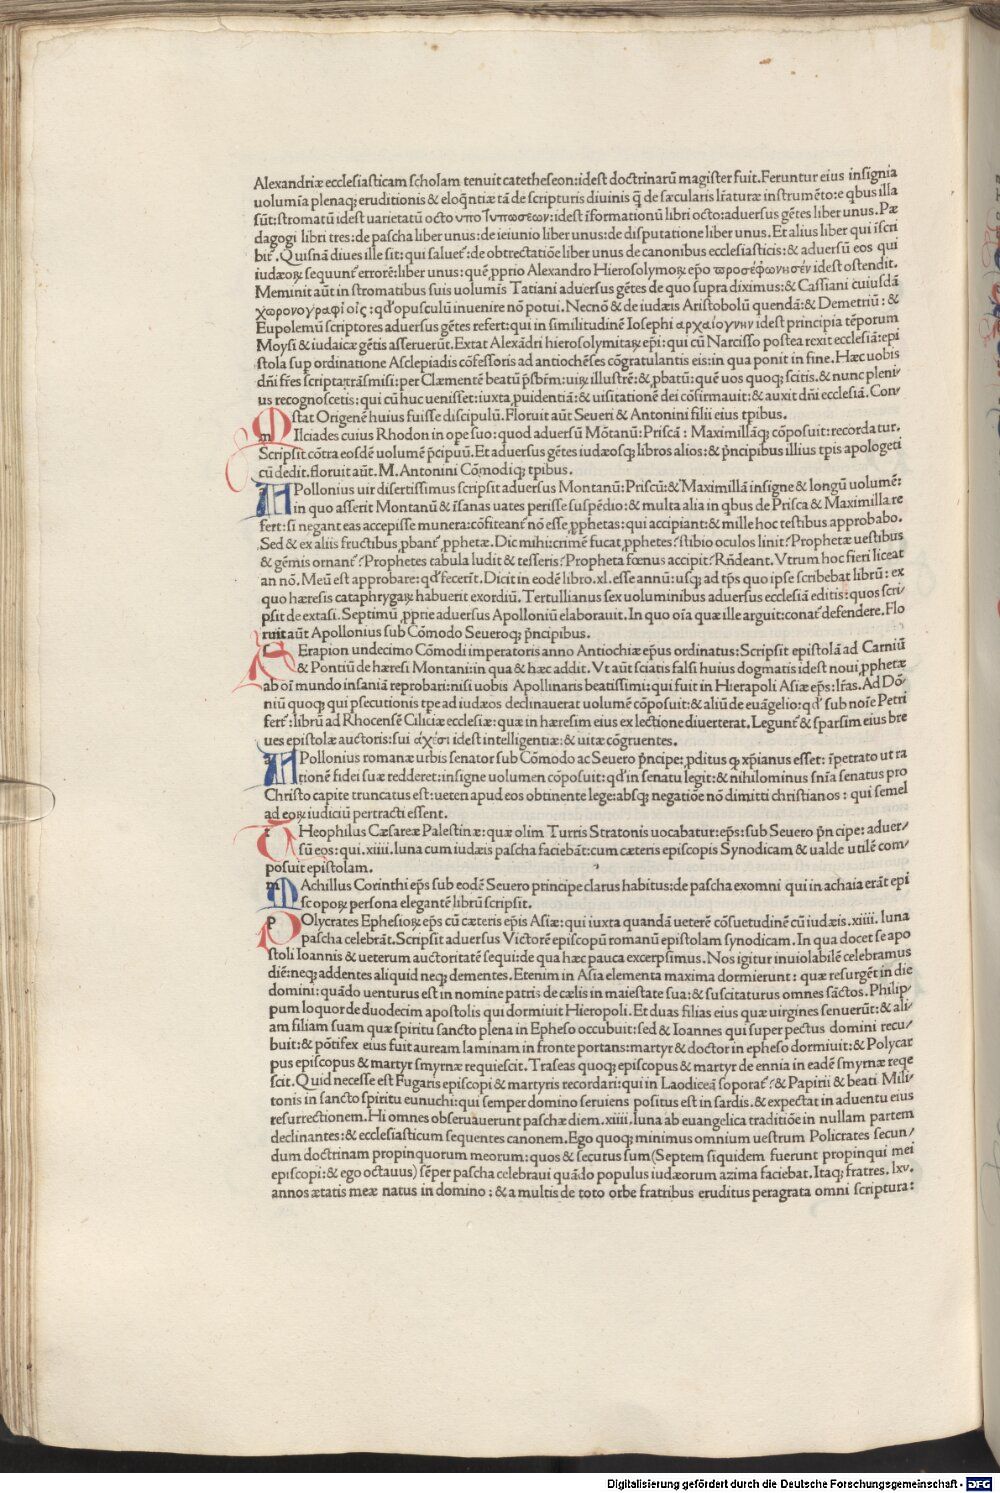 Alexandriæ ecclesiasticam scholam tenuit catetheseon:idest doctrinarū magister fuit.Feruntur eius insignia
uolumīa plenaq; eruditionis & eloq̄ntiæ tā de scripturis diuinis q̄ de sæcularis lr̄aturæ instrumēto:e qbus illa
sūt:stromatū idest uarietatū octo υπο Ιυπωσεων:idest īformationū libri octo:aduersus gētes liber unus.Pæ
dagogi libri tres:de pascha liber unus:de ieiunio liber unus:de disputatione liber unus.Et alius liber qui īscri
bit᷑.Quisnā diues ille sit:qui saluet᷑:de obtrectatiōe liber unus de canonibus ecclesiasticis:& aduersū eos qui
iudæoꝝ sequunt᷑ errorē:liber unus:quē ꝓprio Alexandro Hierosolymoꝝ ep̄o προσεφωνησέν idest ostendit.
Meminit aūt in stromatibus suis uolumīs Tatiani aduersus gētes de quo supra diximus:& Cassiani cuiusdā
χωρονογραφί οἱς:qd̓ opusculū inuenire nō potui.Necnō & de iudæis Aristobolū quendā:& Demetriū:&
Eupolemū scriptores aduersus gētes refert:qui in similitudinē Iosephi αρχαίογνην idest principia tēporum
Moysi & iudaicæ gētis asseruerūt.Extat Alexādri hierosolymitaꝝ ep̄i:qui cū Narcisso postea rexit ecclesiā:epi
stola sup ordinatione Asclepiadis cōfessoris ad antiochēses cōgratulantis eis:in qua ponit in fine.Hæc uobis
dn̄i fr̄es scripta trāsmisi:per Clæmentē beatū p̄sbr̄m:uiꝝ illustrē:& ꝓbatū:quē uos quoq; scitis.& nunc pleni⸗
us recognoscetis:qui cū huc uenisset:iuxta ꝓuidentiā:& uisitationē dei cōfirmauit:& auxit dn̄i ecclesiā.Con⸗
stat Origenē huius fuisse discipulū.Floruit aūt Seueri & Antonini filii eius tpibus.
m Ilciades cuius Rhodon in ope suo:quod aduersū Mōtanū:Priscā: Maximillāq; cōposuit:recordatur.
Scripsit cōtra eosdē uolumē p̄cipuū.Et aduersus gētes iudæosq; libros alios:& p̄ncipibus illius tpis apologeti
cū dedit.floruit aūt.M.Antonini Cōmodiq; tpibus.
a Pollonius uir disertissimus scripsit aduersus Montanū:Priscū:& Maximillā insigne & longū uolumē:
in quo asserit Montanū & īsanas uates perisse suspēdio:& multa alia in qbus de Prisca & Maximilla re
fert:si negant eas accepisse munera:cōfiteant᷑ nō esse ꝓphetas:qui accipiant:& mille hoc testibus approbabo.
Sed & ex aliis fructibus ꝓbant᷑ ꝓphetæ.Dic mihi:crimē fucat ꝓphetes?stibio oculos linit?Prophetæ uestibus
& gēmis ornant᷑?Prophetes tabula ludit & tesseris?Propheta fœnus accipit?Rn̄deant.Vtrum hoc fieri liceat
an nō.Meū est approbare:qd̓ fecerīt.Dicit in eodē libro.xl.esse annū:usq; ad tp̄s quo ipse scribebat librū: ex
quo hæresis cataphrygaꝝ habuerit exordiū.Tertullianus sex uoluminibus aduersus ecclesiā editis:quos scri⸗
psit de extasi.Septimū ꝓprie aduersus Apolloniū elaborauit.In quo oīa quæ ille arguit:conat᷑ defendere.Flo
ruit aūt Apollonius sub Cōmodo Seueroq; p̄ncipibus.
s Erapion undecimo Cōmodi imperatoris anno Antiochiæ ep̄us ordinatus:Scripsit epistolā ad Carniū
& Pontiū de hæresi Montani:in qua & hæc addit.Vt aūt sciatis falsi huius dogmatis idest noui ꝓphetæ
ab oī mundo insaniā reprobari:nisi uobis Apollinaris beatissimi:qui fuit in Hierapoli Asiæ ep̄s:lr̄as.Ad Dō⸗
niū quoq; qui psecutionis tpe ad iudæos declinauerat uolumē cōposuit:& aliū de euāgelio:qd̓ sub noīe Petri
fert᷑:librū ad Rhocensē Ciliciæ ecclesiæ:quæ in hæresim eius ex lectione diuerterat.Legunt᷑ & sparsim eius bre
ues epistolæ auctoris:sui αχέσι idest intelligentiæ:& uitæ cōgruentes.
a Pollonius romanæ urbis senator sub Cōmodo ac Seuero p̄ncipe:ꝓditus q̨ xp̄ianus esset: īpetrato ut ra
tionē fidei suæ redderet:insigne uolumen cōposuit:qd̓ in senatu legit:& nihilominus sn̄ia senatus pro
Christo capite truncatus est:ueteri apud eos obtinente lege:absq; negatiōe nō dimitti christianos: qui semel
ad eoꝝ iudiciū pertracti essent.
t Heophilus Cæsareæ Palestinæ:quæ olim Turris Stratonis uocabatur:ep̄s:sub Seuero p̄ncipe: aduer⸗
sū eos:qui.xiiii.luna cum iudæis pascha faciebāt:cum cæteris episcopis Synodicam & ualde utilē com⸗
posuit epistolam.
m Achillus Corinthi ep̄s sub eodē Seuero principe clarus habitus:de pascha exomni qui in achaia erāt epi
scopoꝝ persona elegantē librū scripsit.
p Olycrates Ephesioꝝ ep̄s cū cæteris ep̄is Asiæ:qui iuxta quandā ueterē cōsuetudinē cū iudæis.xiiii.luna
pascha celebrāt.Scripsit aduersus Victorē episcopū romanū epistolam synodicam.In qua docet se apo
stoli Ioannis & ueterum auctoritatē sequi:de qua hæc pauca excerpsimus.Nos igitur inuiolabilē celebramus
diē:neq; addentes aliquid neq; dementes.Etenim in Asia elementa maxima dormierunt: quæ resurgēt in die
domini:quādo uenturus est in nomine patris de cælis in maiestate sua:& suscitaturus omnes sāctos.Philip⸗
pum loquor de duodecim apostolis qui dormiuit Hieropoli.Et duas filias eius quæ uirgines senuerūt:& ali⸗
am filiam suam quæ spiritu sancto plena in Epheso occubuit:sed & Ioannes qui super pectus domini recu⸗
buit:& pōtifex eius fuit auream laminam in fronte portans:martyr & doctor in epheso dormiuit:& Polycar
pus episcopus & martyr smyrnæ requiescit.Traseas quoq; episcopus & martyr de ennia in eadē smyrnæ reqe
scit.Quid necesse est Fugaris episcopi & martyris recordari:qui in Laodiceā soporat᷑?& Papirii & beati Mili⸗
tonis in sancto spiritu eunuchi:qui semper domino seruiens positus est in sardis.& expectat in aduentu eius
resurrectionem.Hi omnes obseruauerunt paschæ diem.xiiii.luna ab euangelica traditiōe in nullam partem
declinantes:& ecclesiasticum sequentes canonem.Ego quoq; minimus omnium uestrum Policrates secun⸗
dum doctrinam propinquorum meorum:quos & secutus sum(Septem siquidem fuerunt propinqui mei
episcopi:& ego octauus) sēper pascha celebraui quādo populus iudæorum azima faciebat.Itaq; fratres. lxv.
annos ætatis meæ natus in domino: & a multis de toto orbe fratribus eruditus peragrata omni scriptura:
Digitalisierung gefördert durch die Deutsche Forschungsgemeinschaft - DFG